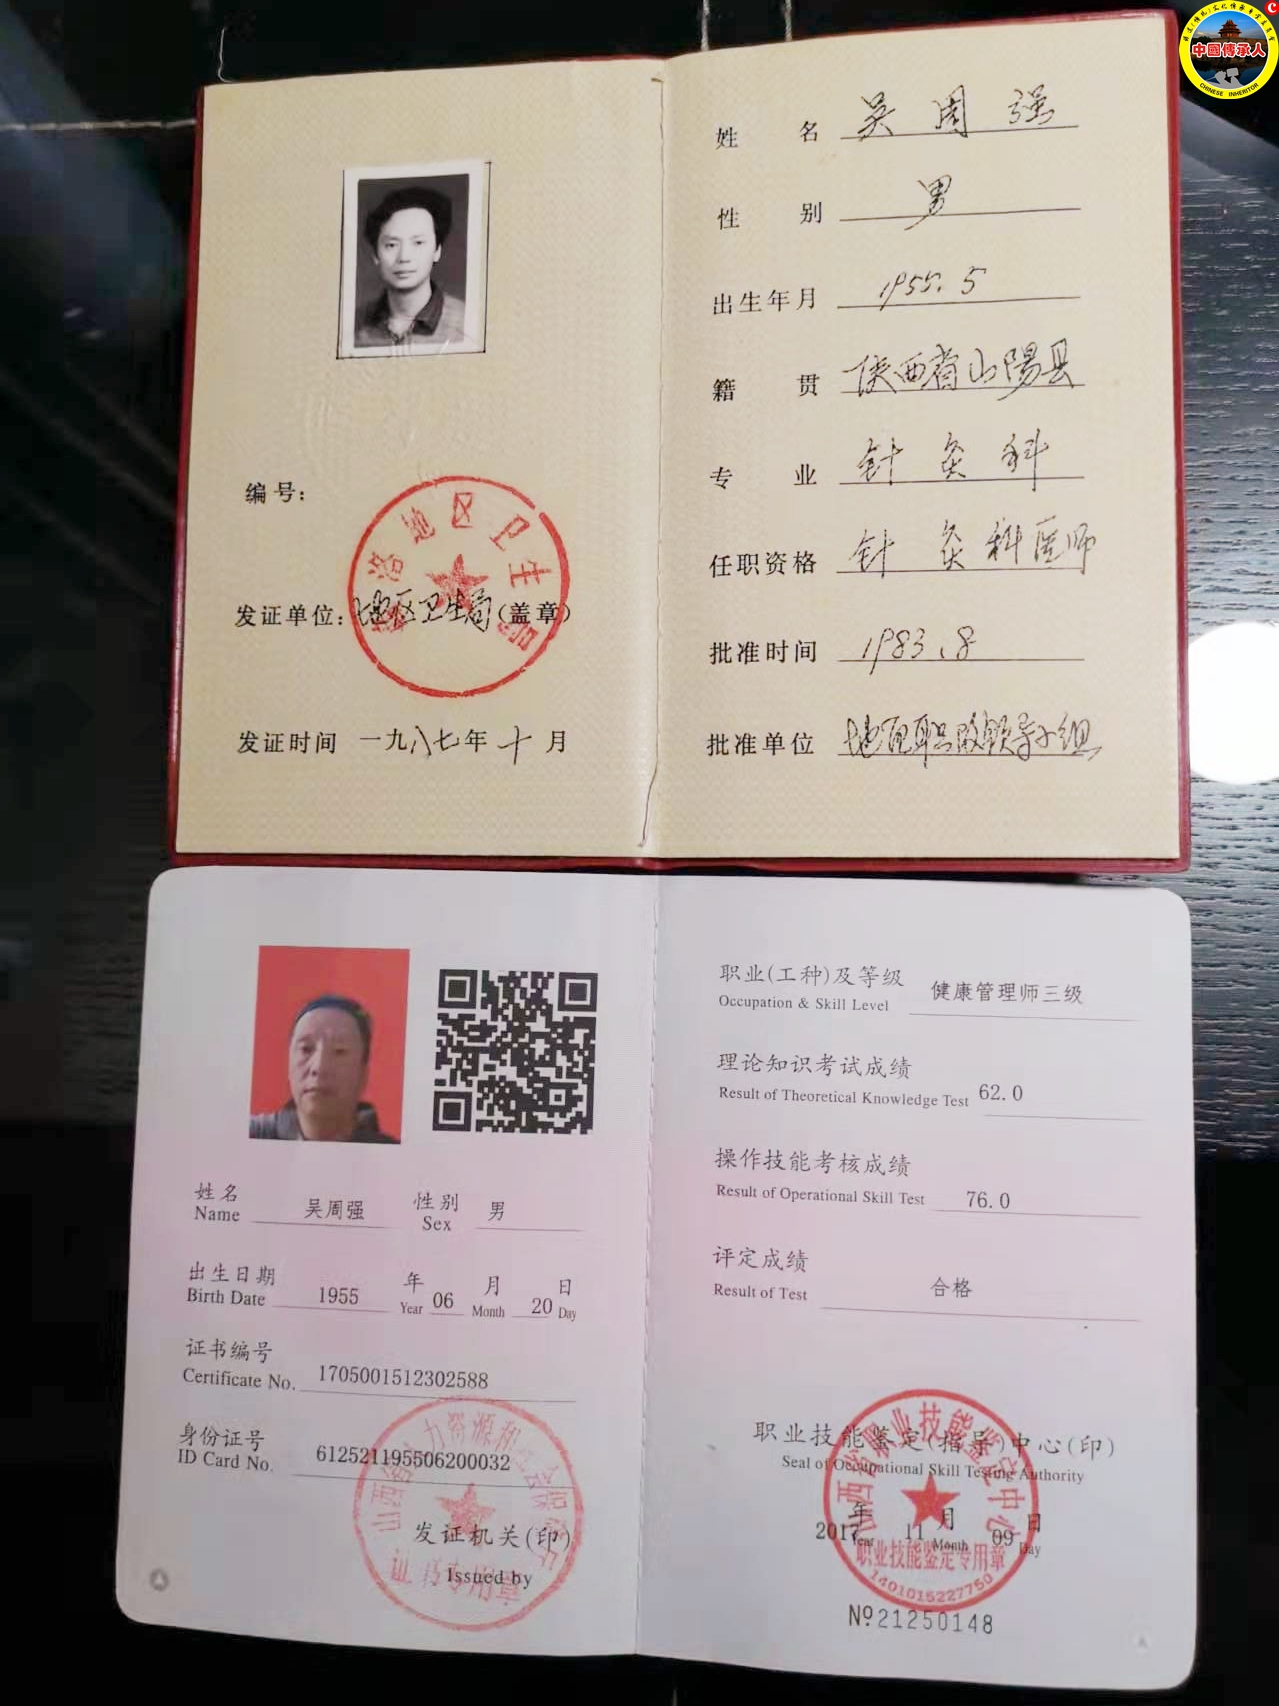 中國傳承人
CHINESE INHERITOR
姓 名 吴周强
性 别 男
出生年月 1955.5
籍 贯 陕西省山陽县
专 业 针灸科
任职资格 针灸科医师
批准时间 1983.8
批准单位 地区职改领导小组
编号:
洛地区卫生局
发证单位:地区卫生局(盖章)
发证时间 一九八七年十月
姓名 吴周强 性别 男
Name Sex
出生日期 1955 年 06 月 20 日
Birth Date Year Month Day
证书编号
Certificate No. 1705001512302588
身份证号
ID Card No. 612521195506200032
发证机关(印)
Issued by
证书专用章
职业(工种)及等级 健康管理师三级
Occupation & Skill Level
理论知识考试成绩
Result of Theoretical Knowledge Test 62.0
操作技能考核成绩
Result of Operational Skill Test 76.0
评定成绩 合格
Result of Test
职业技能鉴定(指导)中心(印)
Seal of Occupational Skill Testing Authority
2017 年 11 月 09 日
Year Month Day
山西省职业技能鉴定中心
职业技能鉴定专用章
1401015227750
№21250148